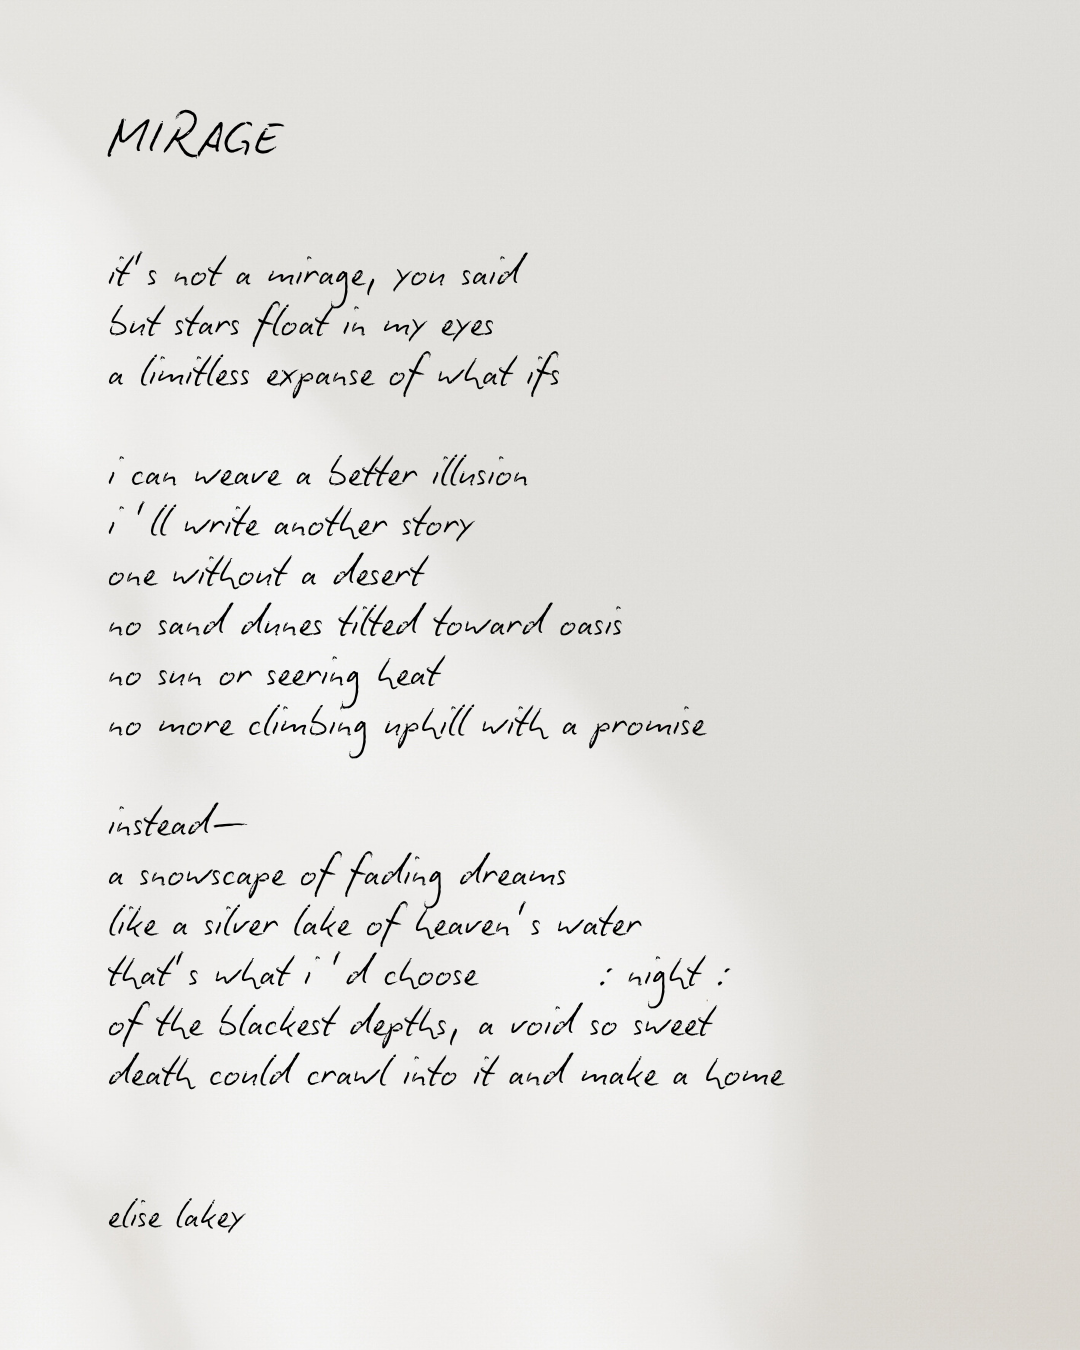 MIRAGE
it's not a mirage, you said
but stars float in my eyes
a limitless expanse of what ifs
i can weave a better illusion
i'll write another story
one without a desert
no sand dunes tilted toward oasis
no sun or seering heat
no more climbing uphill with a promise
instead—
a snowscape of fading dreams
like a silver lake of heaven's water
that's what i'd choose : night :
of the blackest depths, a void so sweet
death could crawl into it and make a home
elise lakey